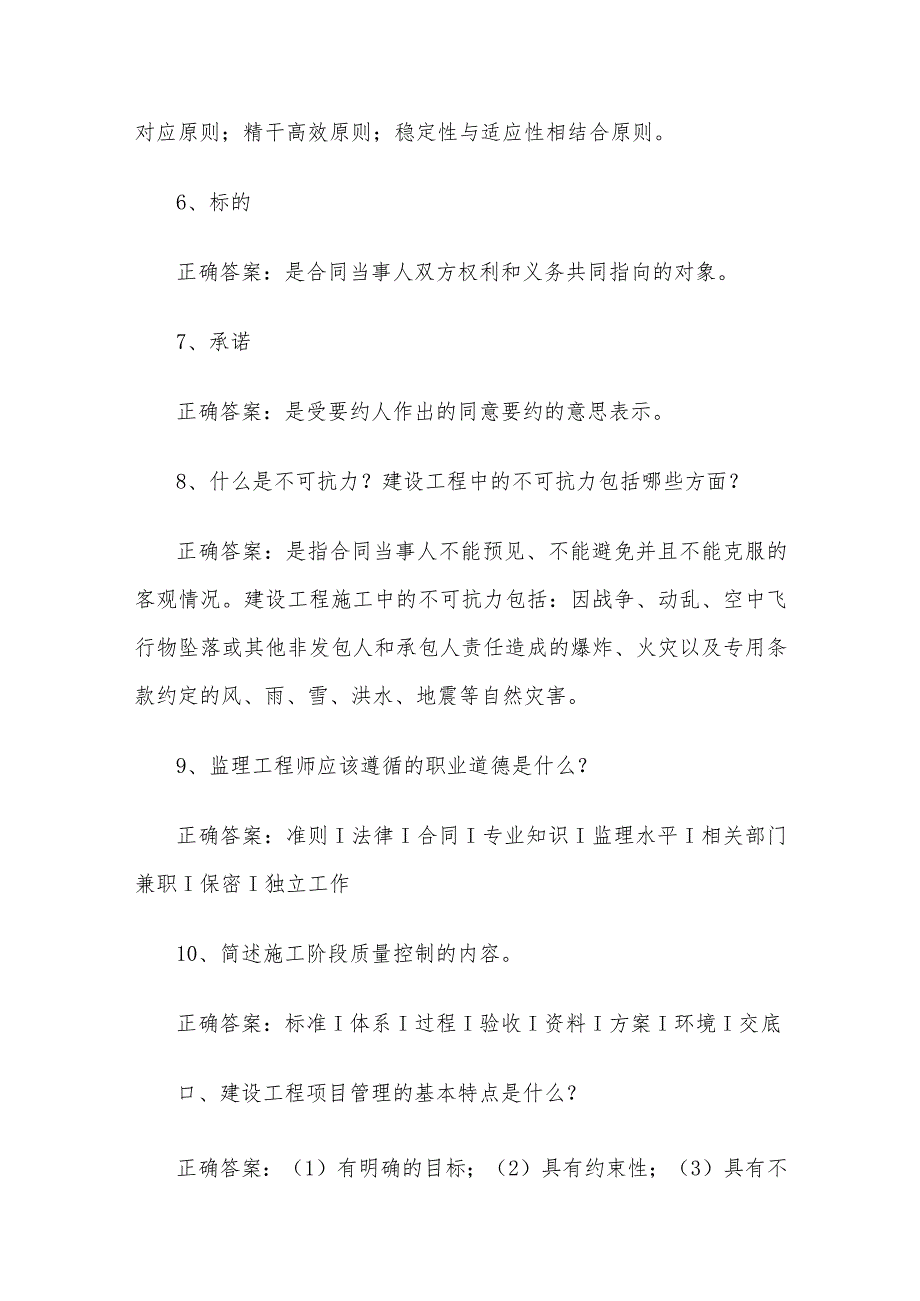 对应原则；精干高效原则；稳定性与适应性相结合原则。
6、标的
正确答案：是合同当事人双方权利和义务共同指向的对象。
7、承诺
正确答案：是受要约人作出的同意要约的意思表示。
8、什么是不可抗力？建设工程中的不可抗力包括哪些方面？
正确答案：是指合同当事人不能预见、不能避免并且不能克服的
客观情况。建设工程施工中的不可抗力包括：因战争、动乱、空中飞
行物坠落或其他非发包人和承包人责任造成的爆炸、火灾以及专用条
款约定的风、雨、雪、洪水、地震等自然灾害。
9、监理工程师应该遵循的职业道德是什么？
正确答案：准则Ｉ法律Ｉ合同Ｉ专业知识Ｉ监理水平Ｉ相关部门
兼职Ｉ保密Ｉ独立工作
10、简述施工阶段质量控制的内容。
正确答案：标准Ｉ体系Ｉ过程Ｉ验收Ｉ资料Ｉ方案Ｉ环境Ｉ交底
口、建设工程项目管理的基本特点是什么？
正确答案：（1）有明确的目标；（2）具有约束性；（3）具有不